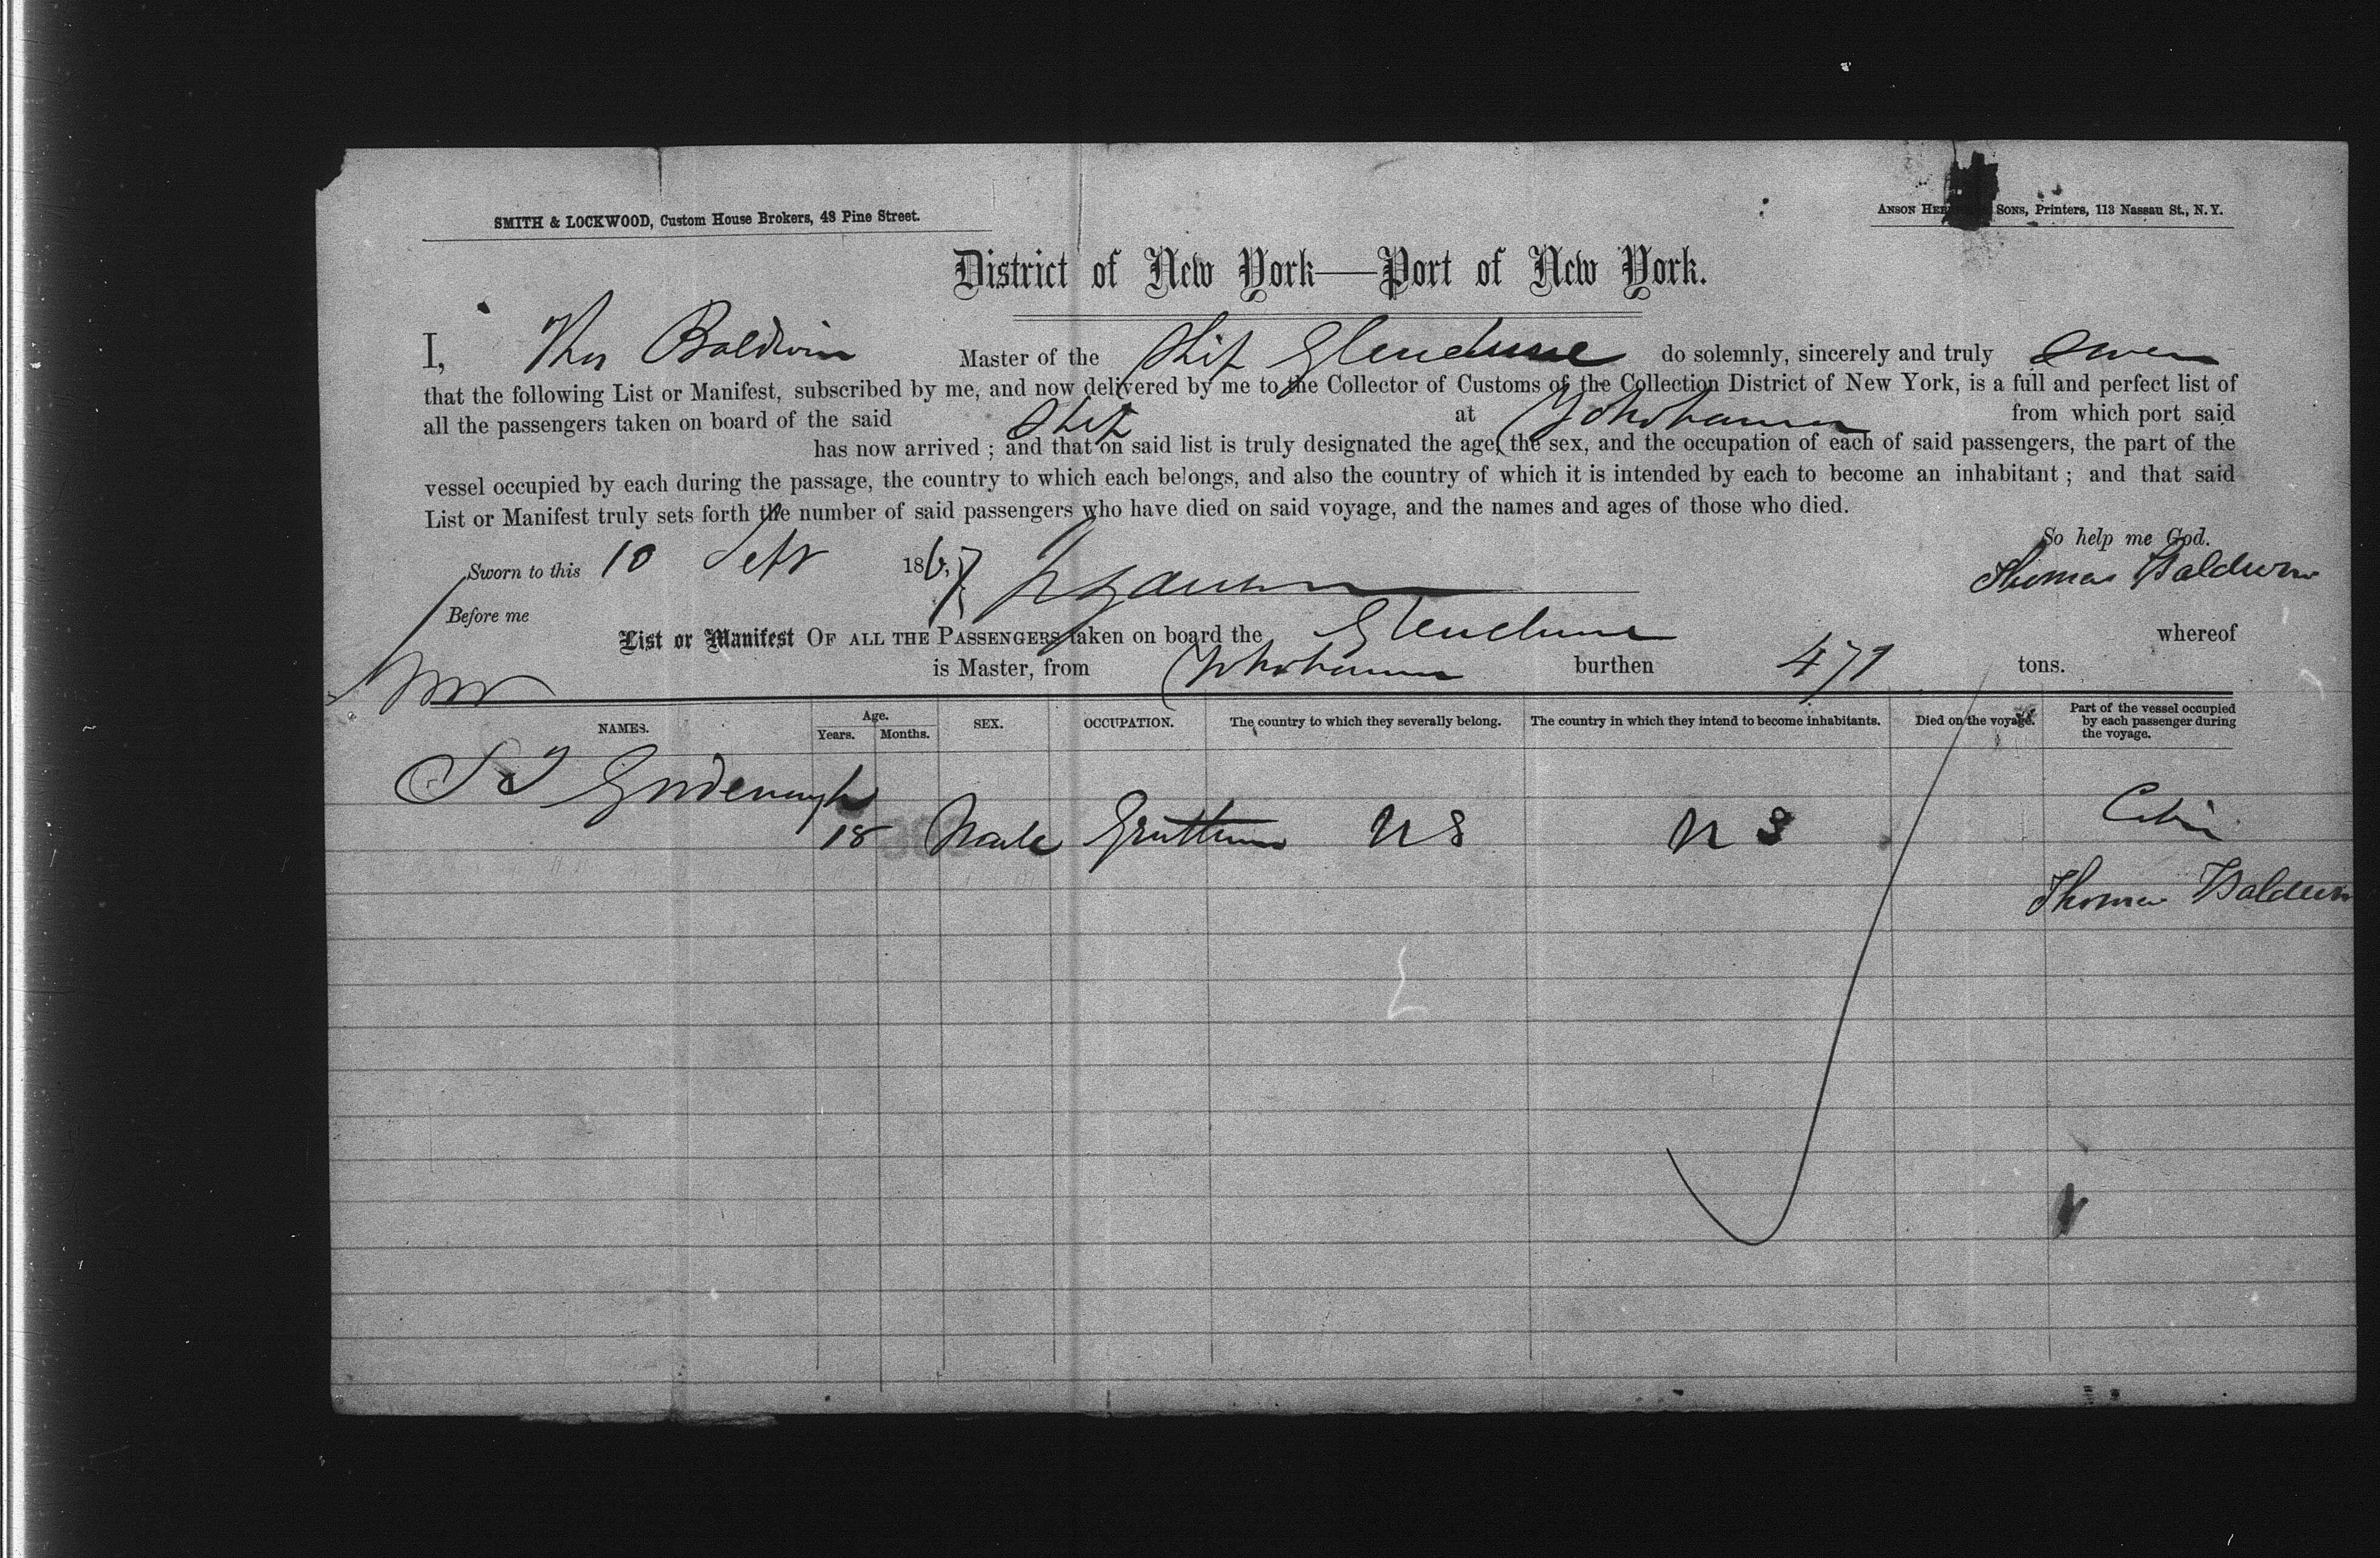 SMITH & LOCKWOOD, Custom House Brokers, 48 Pine Street.
ANSON SONS, Printers, 113 Nassau St., N. Y.
District of New York—Port of New York.
I, Thos Baldwin Master of the Ship do solemnly, sincerely and truly swear
that the following List or Manifest, subscribed by me, and now delivered by me to the Collector of Customs of the Collection District of New York, is a full and perfect list of
all the passengers taken on board of the said Ship at Yokohama from which port said
has now arrived ; and that on said list is truly designated the age, the sex, and the occupation of each of said passengers, the part of the
vessel occupied by each during the passage, the country to which each belongs, and also the country of which it is intended by each to become an inhabitant ; and that said
List or Manifest truly sets forth the number of said passengers who have died on said voyage, and the names and ages of those who died.
So help me God.
Sworn to this 10 Sept 1867 Thomas Baldwin
Before me
List or Manifest OF ALL THE PASSENGERS taken on board the whereof
is Master, from Yokohama burthen 471 tons.
NAMES. Age. Years. Months. SEX. OCCUPATION. The country to which they severally belong. The country in which they intend to become inhabitants. Died on the voyage. Part of the vessel occupied by each passenger during the voyage.
Goodenough
18 Male US US Cabin
Thomas Baldwin